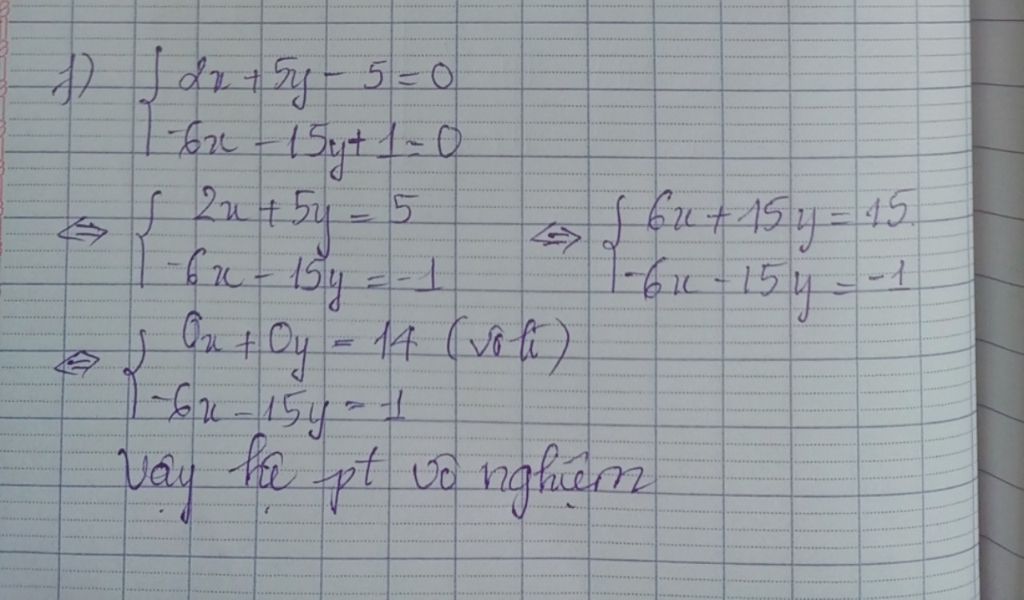 f) { 2x + 5y - 5 = 0
-6x - 15y + 1 = 0
⇔ { 2x + 5y = 5
-6x - 15y = -1
⇔ { 6x + 15y = 15
-6x - 15y = -1
⇔ { 0x + 0y = 14 (vô lí)
-6x - 15y = -1
Vậy hệ pt vô nghiệm